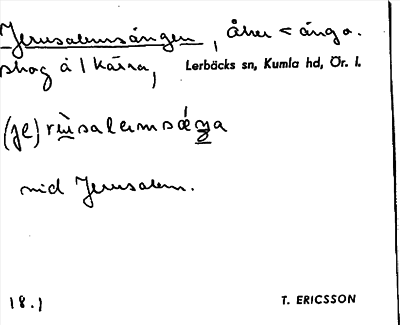 Jerusalemsängen, åker < änga.
skog å 1 kärra, Lerbäcks sn, Kumla hd, Ör. l.
(je)rùsalemsǽŋa
vid Jerusalem.
18.1 T. ERICSSON